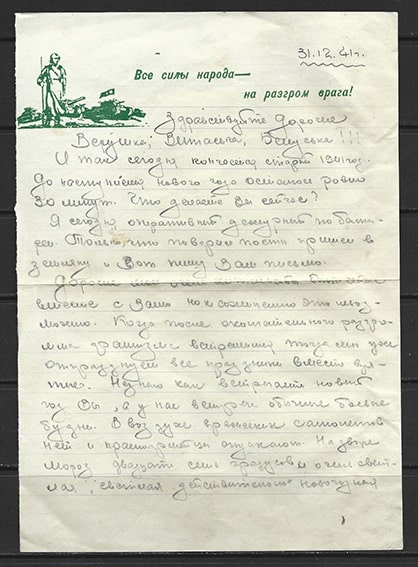 31.12.41г.
Все силы народа—
на разгром врага!
Здравствуйте дорогие
Верушка, Виташка, !!!
И так сегодня кончается старый 1941 год.
До наступления нового года осталось ровно
30 минут. Что делаете Вы сейчас?
Я сегодня оперативный дежурный по бата-
рее. Только что поверил посты пришел в
землянку и вот пишу Вам письмо.
Дорогие мне
вместе с Вами но к сожалению это невоз-
можно. Когда после окончательного разгро-
мма фашизма встретимся тогда уже
отпразднуем все праздники вместе
. Не знаю как встречаете новый
год Вы, а у нас обычные боевые
будни. В воздухе вражеских самолетов
нет и отдыхают. На дворе
мороз двадцать семь градусов и очень свет-
лая, светлая действительно новогодняя